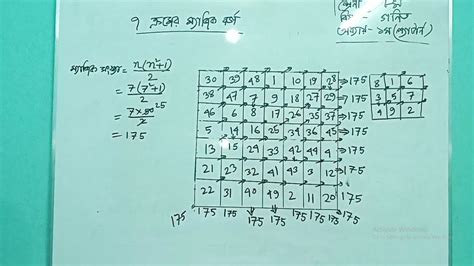 ৭ ক্রমের ম্যাজিক বর্গ
৮ম
গণিত
অধ্যায়: ১ম (প্যাটার্ন)
ম্যাজিক সংখ্যা = n(n²+1)/2
= 7(7²+1)/2
= 7×50/2 25
= 175
30 39 48 1 10 19 28 →175
38 47 7 9 18 27 29 →175
46 6 8 17 26 35 37 →175
5 14 16 25 34 36 45 →175
13 15 24 33 42 44 4 →175
21 23 32 41 43 3 12 →175
22 31 40 49 2 11 20 →175
175 175 175 175 175 175 175 175
8 1 6
3 5 7
4 9 2
Activate Windows